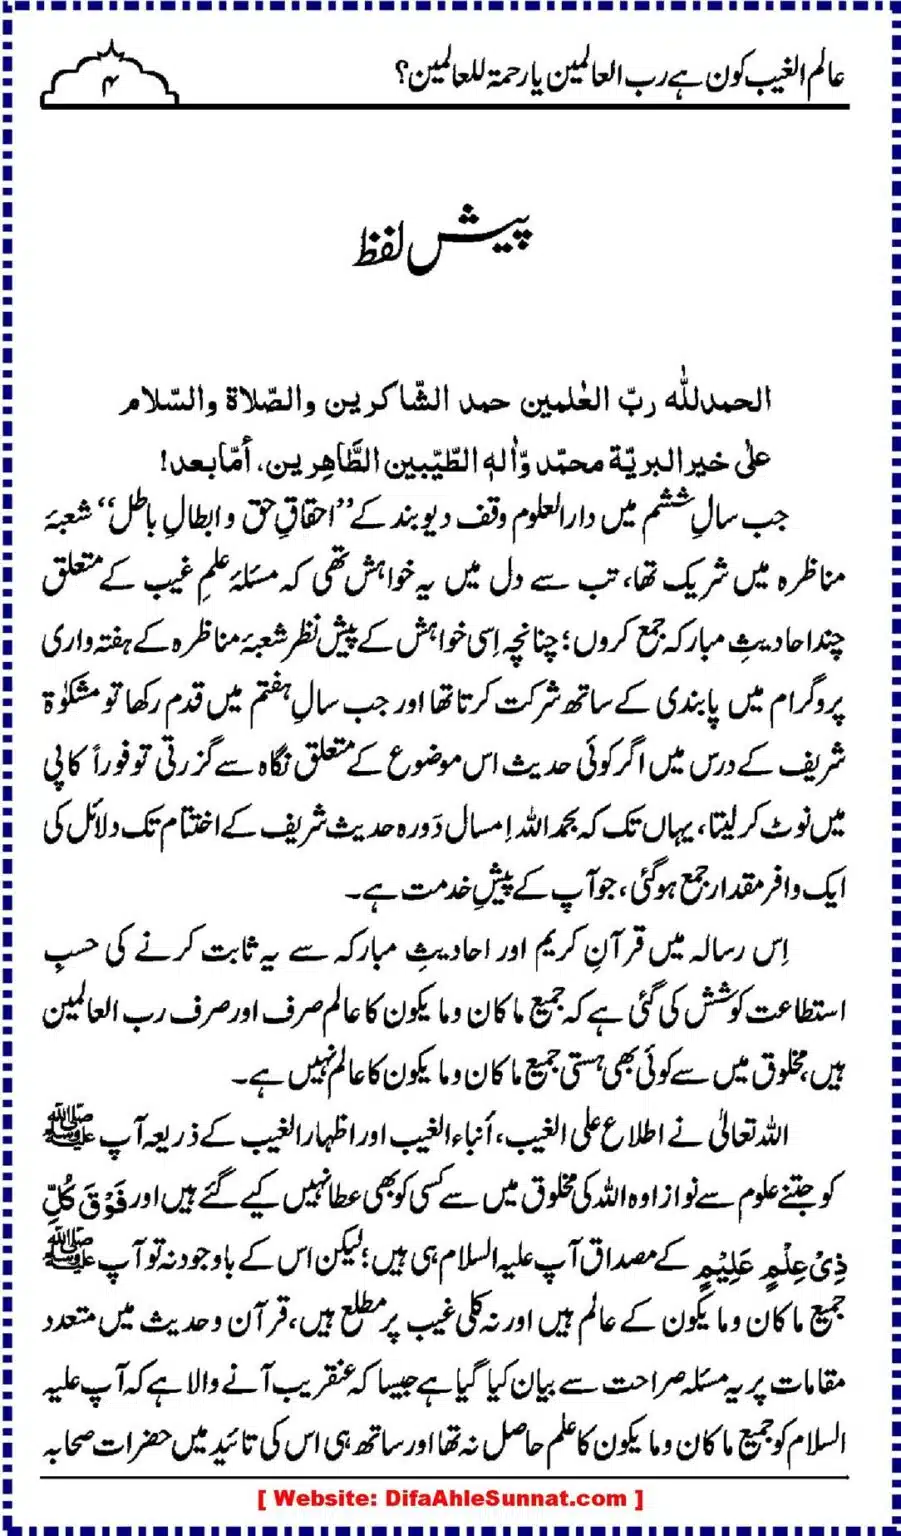 عالم الغیب کون ہے رب العالمین یا رحمۃ للعالمین؟
۴
پیش لفظ
الحمدللّٰہ ربّ العٰلمین حمد الشّاکرین والصّلاۃ والسّلام
علٰی خیر البریّۃ محمّد وّاٰلہٖ الطّیّبین الطّاھرین، أمّا بعد!
جب سالِ ششم میں دارالعلوم وقف دیوبند کے ’’احقاقِ حق و ابطالِ باطل‘‘ شعبۂ
مناظرہ میں شریک تھا، تب سے دل میں یہ خواہش تھی کہ مسئلۂ علمِ غیب کے متعلق
چند احادیثِ مبارکہ جمع کروں؛ چنانچہ اِسی خواہش کے پیش نظر شعبۂ مناظرہ کے ہفتہ واری
پروگرام میں پابندی کے ساتھ شرکت کرتا تھا اور جب سالِ ہفتم میں قدم رکھا تو مشکوٰۃ
شریف کے درس میں اگر کوئی حدیث اس موضوع کے متعلق نگاہ سے گزرتی تو فوراً کاپی
میں نوٹ کر لیتا، یہاں تک کہ بحمد اللہ اِمسال دَورہ حدیث شریف کے اختتام تک دلائل کی
ایک وافر مقدار جمع ہوگئی، جو آپ کے پیشِ خدمت ہے۔
اِس رسالہ میں قرآنِ کریم اور احادیثِ مبارکہ سے یہ ثابت کرنے کی حسبِ
استطاعت کوشش کی گئی ہے کہ جمیع ما کان وما یکون کا عالم صرف اور صرف رب العالمین
ہیں، مخلوق میں سے کوئی بھی ہستی جمیع ما کان وما یکون کا عالم نہیں ہے۔
اللہ تعالیٰ نے اطلاع علی الغیب، أنباء الغیب اور اظہار الغیب کے ذریعہ آپ ﷺ
کو جتنے علوم سے نوازا وہ اللہ کی مخلوق میں سے کسی کو بھی عطا نہیں کیے گئے ہیں اور فَوْقَ کُلِّ
ذِیْ عِلْمٍ عَلِیْمٍ کے مصداق آپ علیہ السلام ہی ہیں؛ لیکن اس کے باوجود نہ تو آپ ﷺ
جمیع ما کان وما یکون کے عالم ہیں اور نہ کلی غیب پر مطلع ہیں، قرآن و حدیث میں متعدد
مقامات پر یہ مسئلہ صراحت سے بیان کیا گیا ہے جیسا کہ عنقریب آنے والا ہے کہ آپ علیہ
السلام کو جمیع ما کان وما یکون کا علم حاصل نہ تھا اور ساتھ ہی اس کی تائید میں حضرات صحابہ
[ Website: DifaAhleSunnat.com ]